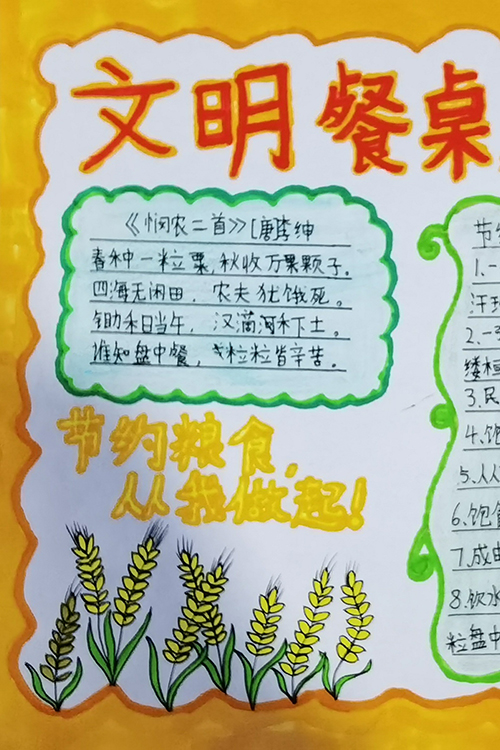 文明餐桌
《悯农二首》[唐李绅
春种一粒粟,秋收万果颗子.
四海无闲田、农夫犹饿死。
锄禾日当午,汉滴河禾下土。
谁知盘中餐,粒粒皆辛苦。
节约粮食,
从我做起!
节
1.一
汗
2.一
缕
3.民
4.饱
5.从
6.饱食
7.成由
8.饮水
粒盘中